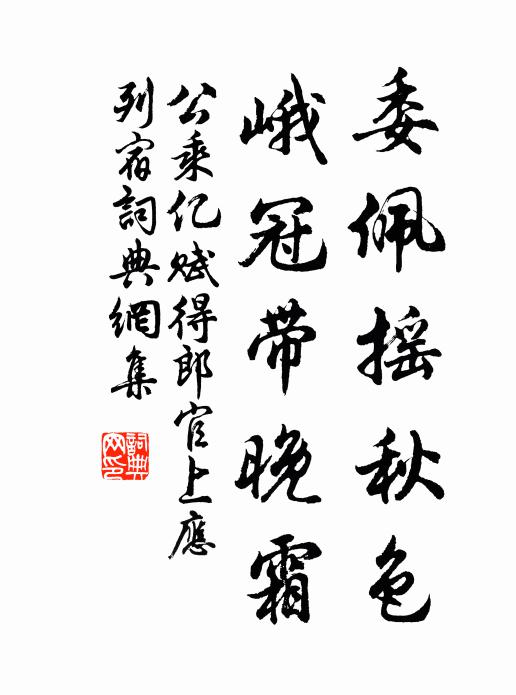 委佩摇秋色
峨冠带晚霜
公乘亿赋得郎官上應
列宿詞典網集
詞典
网印